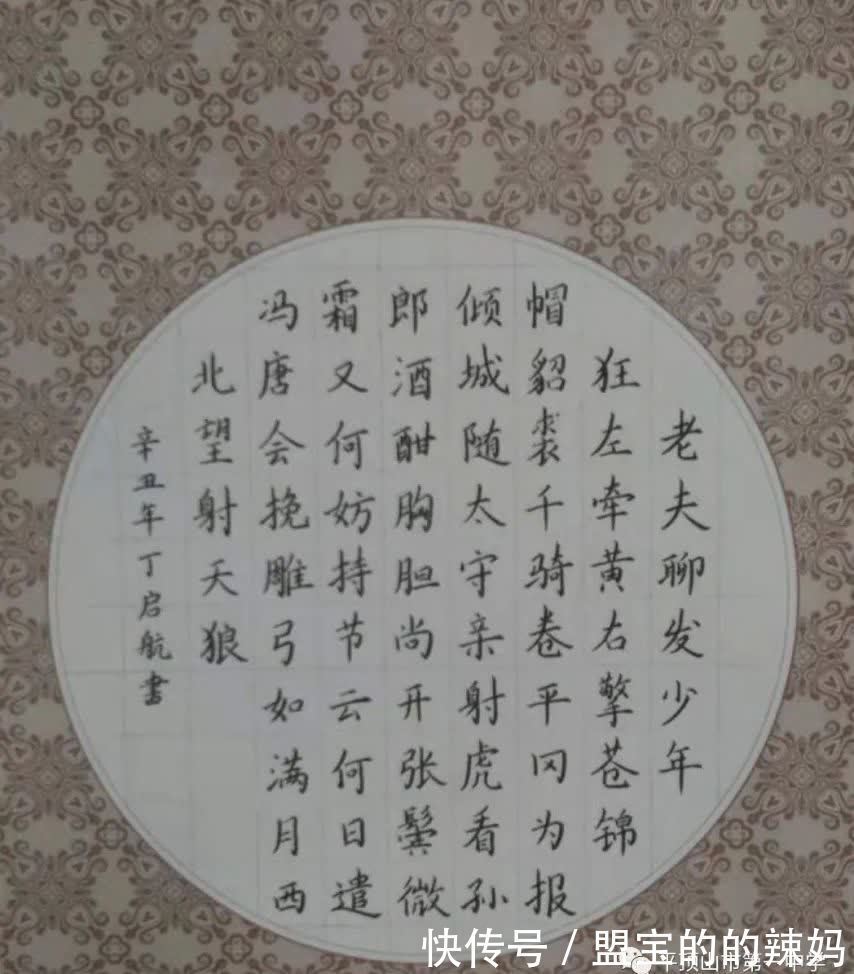 老夫聊发少年
狂左牵黄右擎苍锦
帽貂裘千骑卷平冈为报
倾城随太守亲射虎看孙
郎酒酣胸胆尚开张鬓微
霜又何妨持节云中何日遣
冯唐会挽雕弓如满月西
北望射天狼
辛丑年丁启航书
快传号/盟宝的的辣妈
平顶山市第一中学